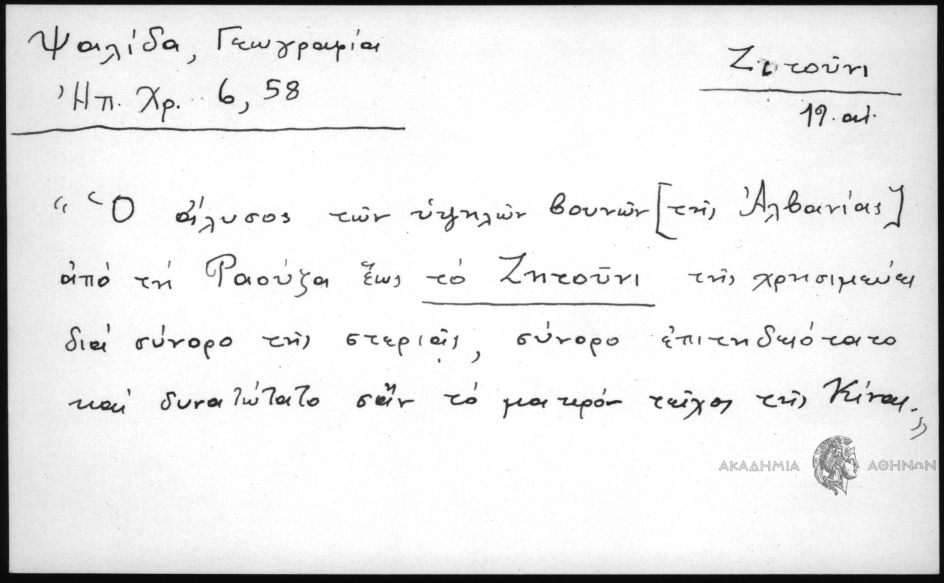 Ψαλίδα, Γεωγραφία
Ἠπ. Χρ. 6, 58
Ζητοῦνι
19. αἰ.
“ Ὁ ἅλυσος τῶν ὑψηλῶν βουνῶν [τῆς Ἀλβανίας]
ἀπό τή Ραούζα ἕως τό Ζητοῦνι τῆς χρησιμεύει
διά σύνορο τῆς στεριᾶς, σύνορο ἐπιτηδειότατο
καί δυνατώτατο σἄν τό μακρόν τεῖχος τῆς Κίνας.”
ΑΚΑΔΗΜΙΑ ΑΘΗΝΩΝ